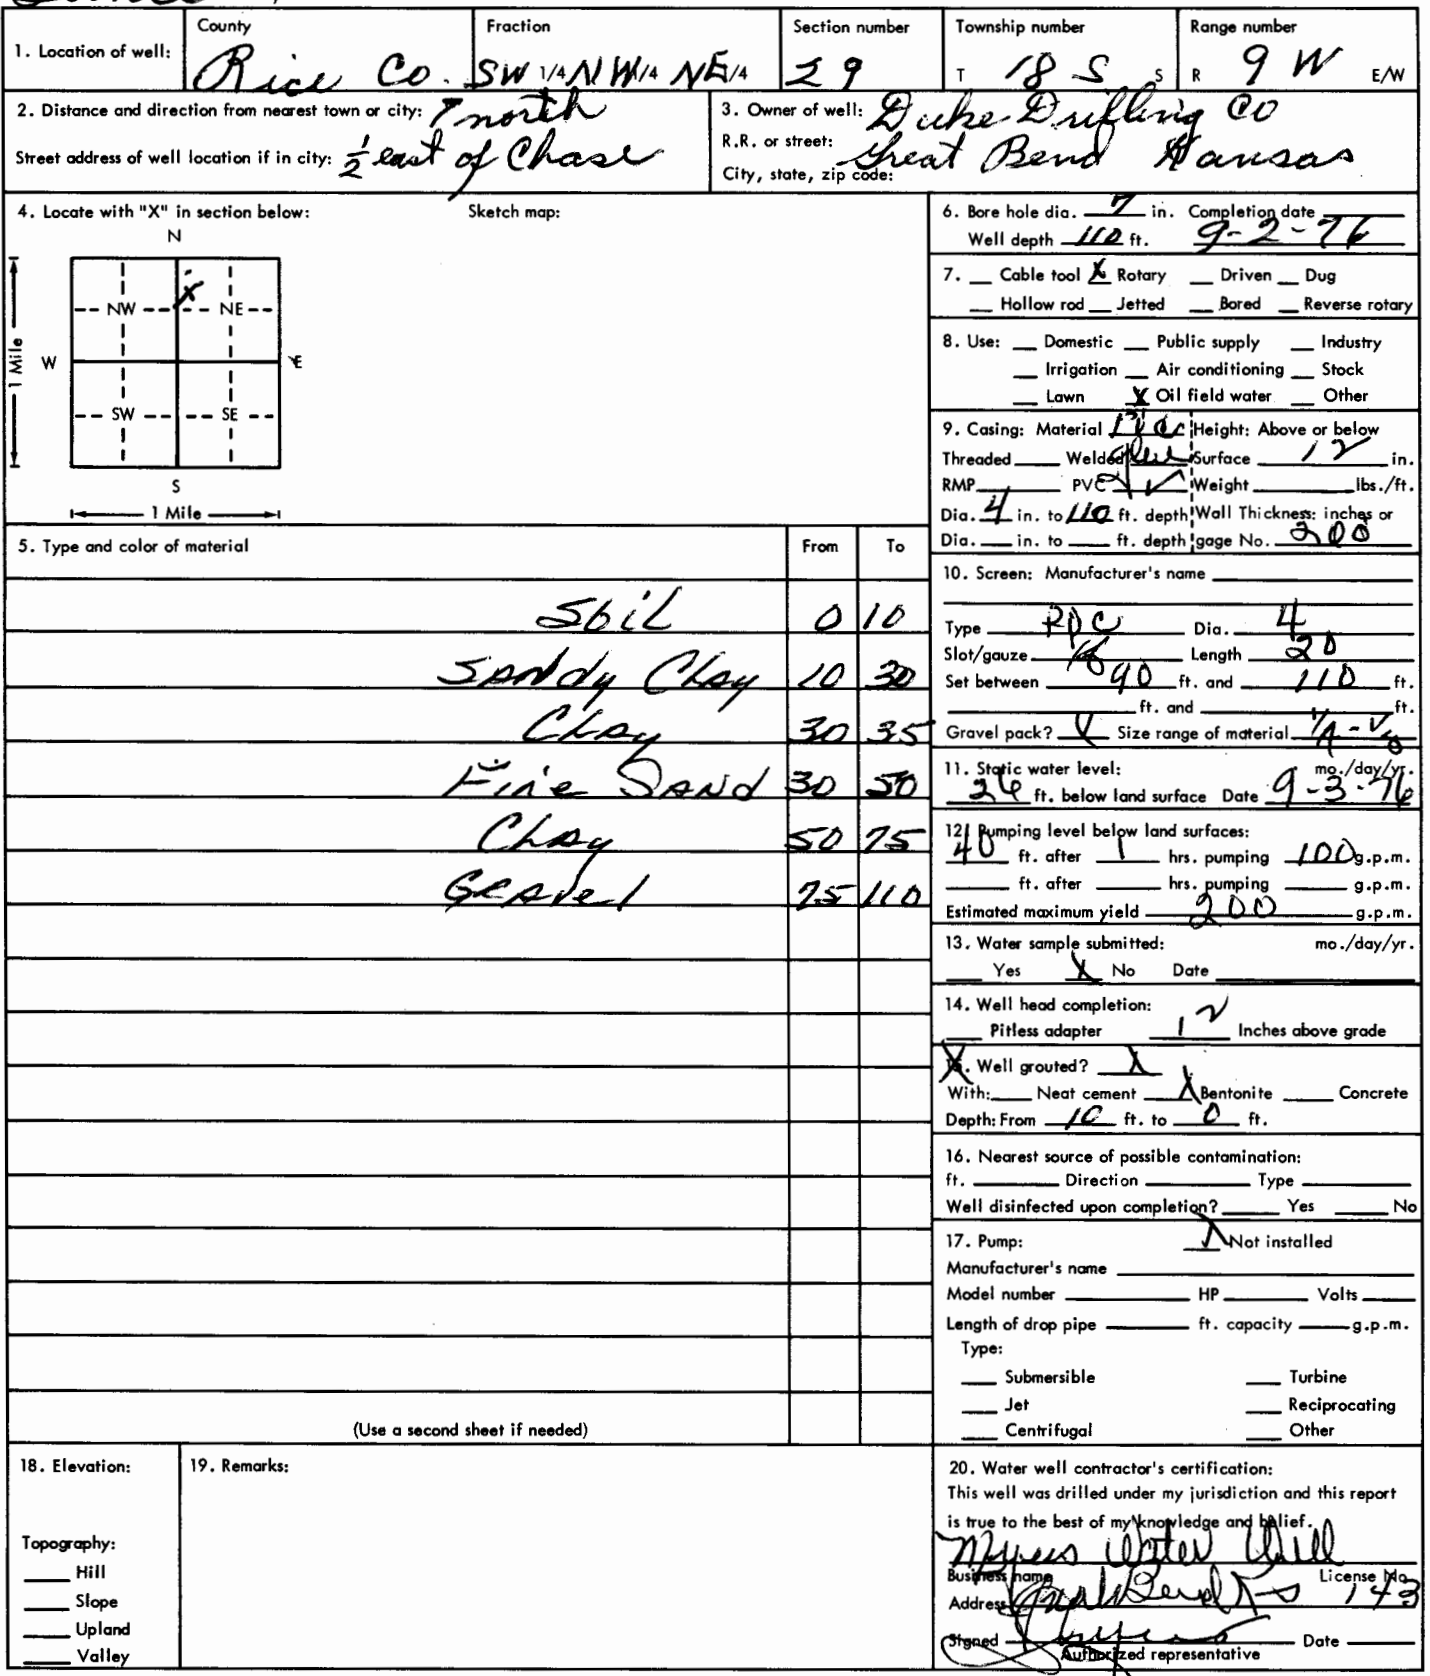 County Fraction Section number Township number Range number
1. Location of well: Rice Co. SW 1/4 NW 1/4 NE 1/4 29 T 18 S S R 9 W E/W
2. Distance and direction from nearest town or city: 7 north
Street address of well location if in city: 1/2 east of Chase
3. Owner of well: Duke Drilling Co
R.R. or street:
City, state, zip code: Great Bend Kansas
4. Locate with "X" in section below: Sketch map:
N
X
NW NE
W E
SW SE
S
1 Mile
1 Mile
5. Type and color of material From To
Soil 0 10
Sandy Clay 10 30
Clay 30 35
Fine Sand 30 50
Clay 50 75
Gravel 75 110
(Use a second sheet if needed)
6. Bore hole dia. 7 in. Completion date
Well depth 110 ft. 9-2-76
7. Cable tool X Rotary Driven Dug
Hollow rod Jetted Bored Reverse rotary
8. Use: Domestic Public supply Industry
Irrigation Air conditioning Stock
Lawn X Oil field water Other
9. Casing: Material Height: Above or below
Threaded Welded Surface 12 in.
RMP PVC Weight lbs./ft.
Dia. 4 in. to 110 ft. depth Wall Thickness: inches or
Dia. in. to ft. depth gage No. 200
10. Screen: Manufacturer's name
Type Dia. 4
Slot/gauze Length 20
Set between 90 ft. and 110 ft.
ft. and ft.
Gravel pack? Size range of material 1/4 - 1/8
11. Static water level: mo./day/yr.
26 ft. below land surface Date 9-3-76
12. Pumping level below land surfaces:
40 ft. after 1 hrs. pumping 100 g.p.m.
ft. after hrs. pumping g.p.m.
Estimated maximum yield 200 g.p.m.
13. Water sample submitted: mo./day/yr.
Yes X No Date
14. Well head completion:
Pitless adapter 12 Inches above grade
15. Well grouted? X
With: Neat cement X Bentonite Concrete
Depth: From 10 ft. to 0 ft.
16. Nearest source of possible contamination:
ft. Direction Type
Well disinfected upon completion? Yes No
17. Pump: X Not installed
Manufacturer's name
Model number HP Volts
Length of drop pipe ft. capacity g.p.m.
Type:
Submersible Turbine
Jet Reciprocating
Centrifugal Other
18. Elevation:
Topography:
Hill
Slope
Upland
Valley
19. Remarks:
20. Water well contractor's certification:
This well was drilled under my jurisdiction and this report
is true to the best of my knowledge and belief.
Myers Water Well
Business name License No.
Address Great Bend Ks 143
Signed Date
Authorized representative